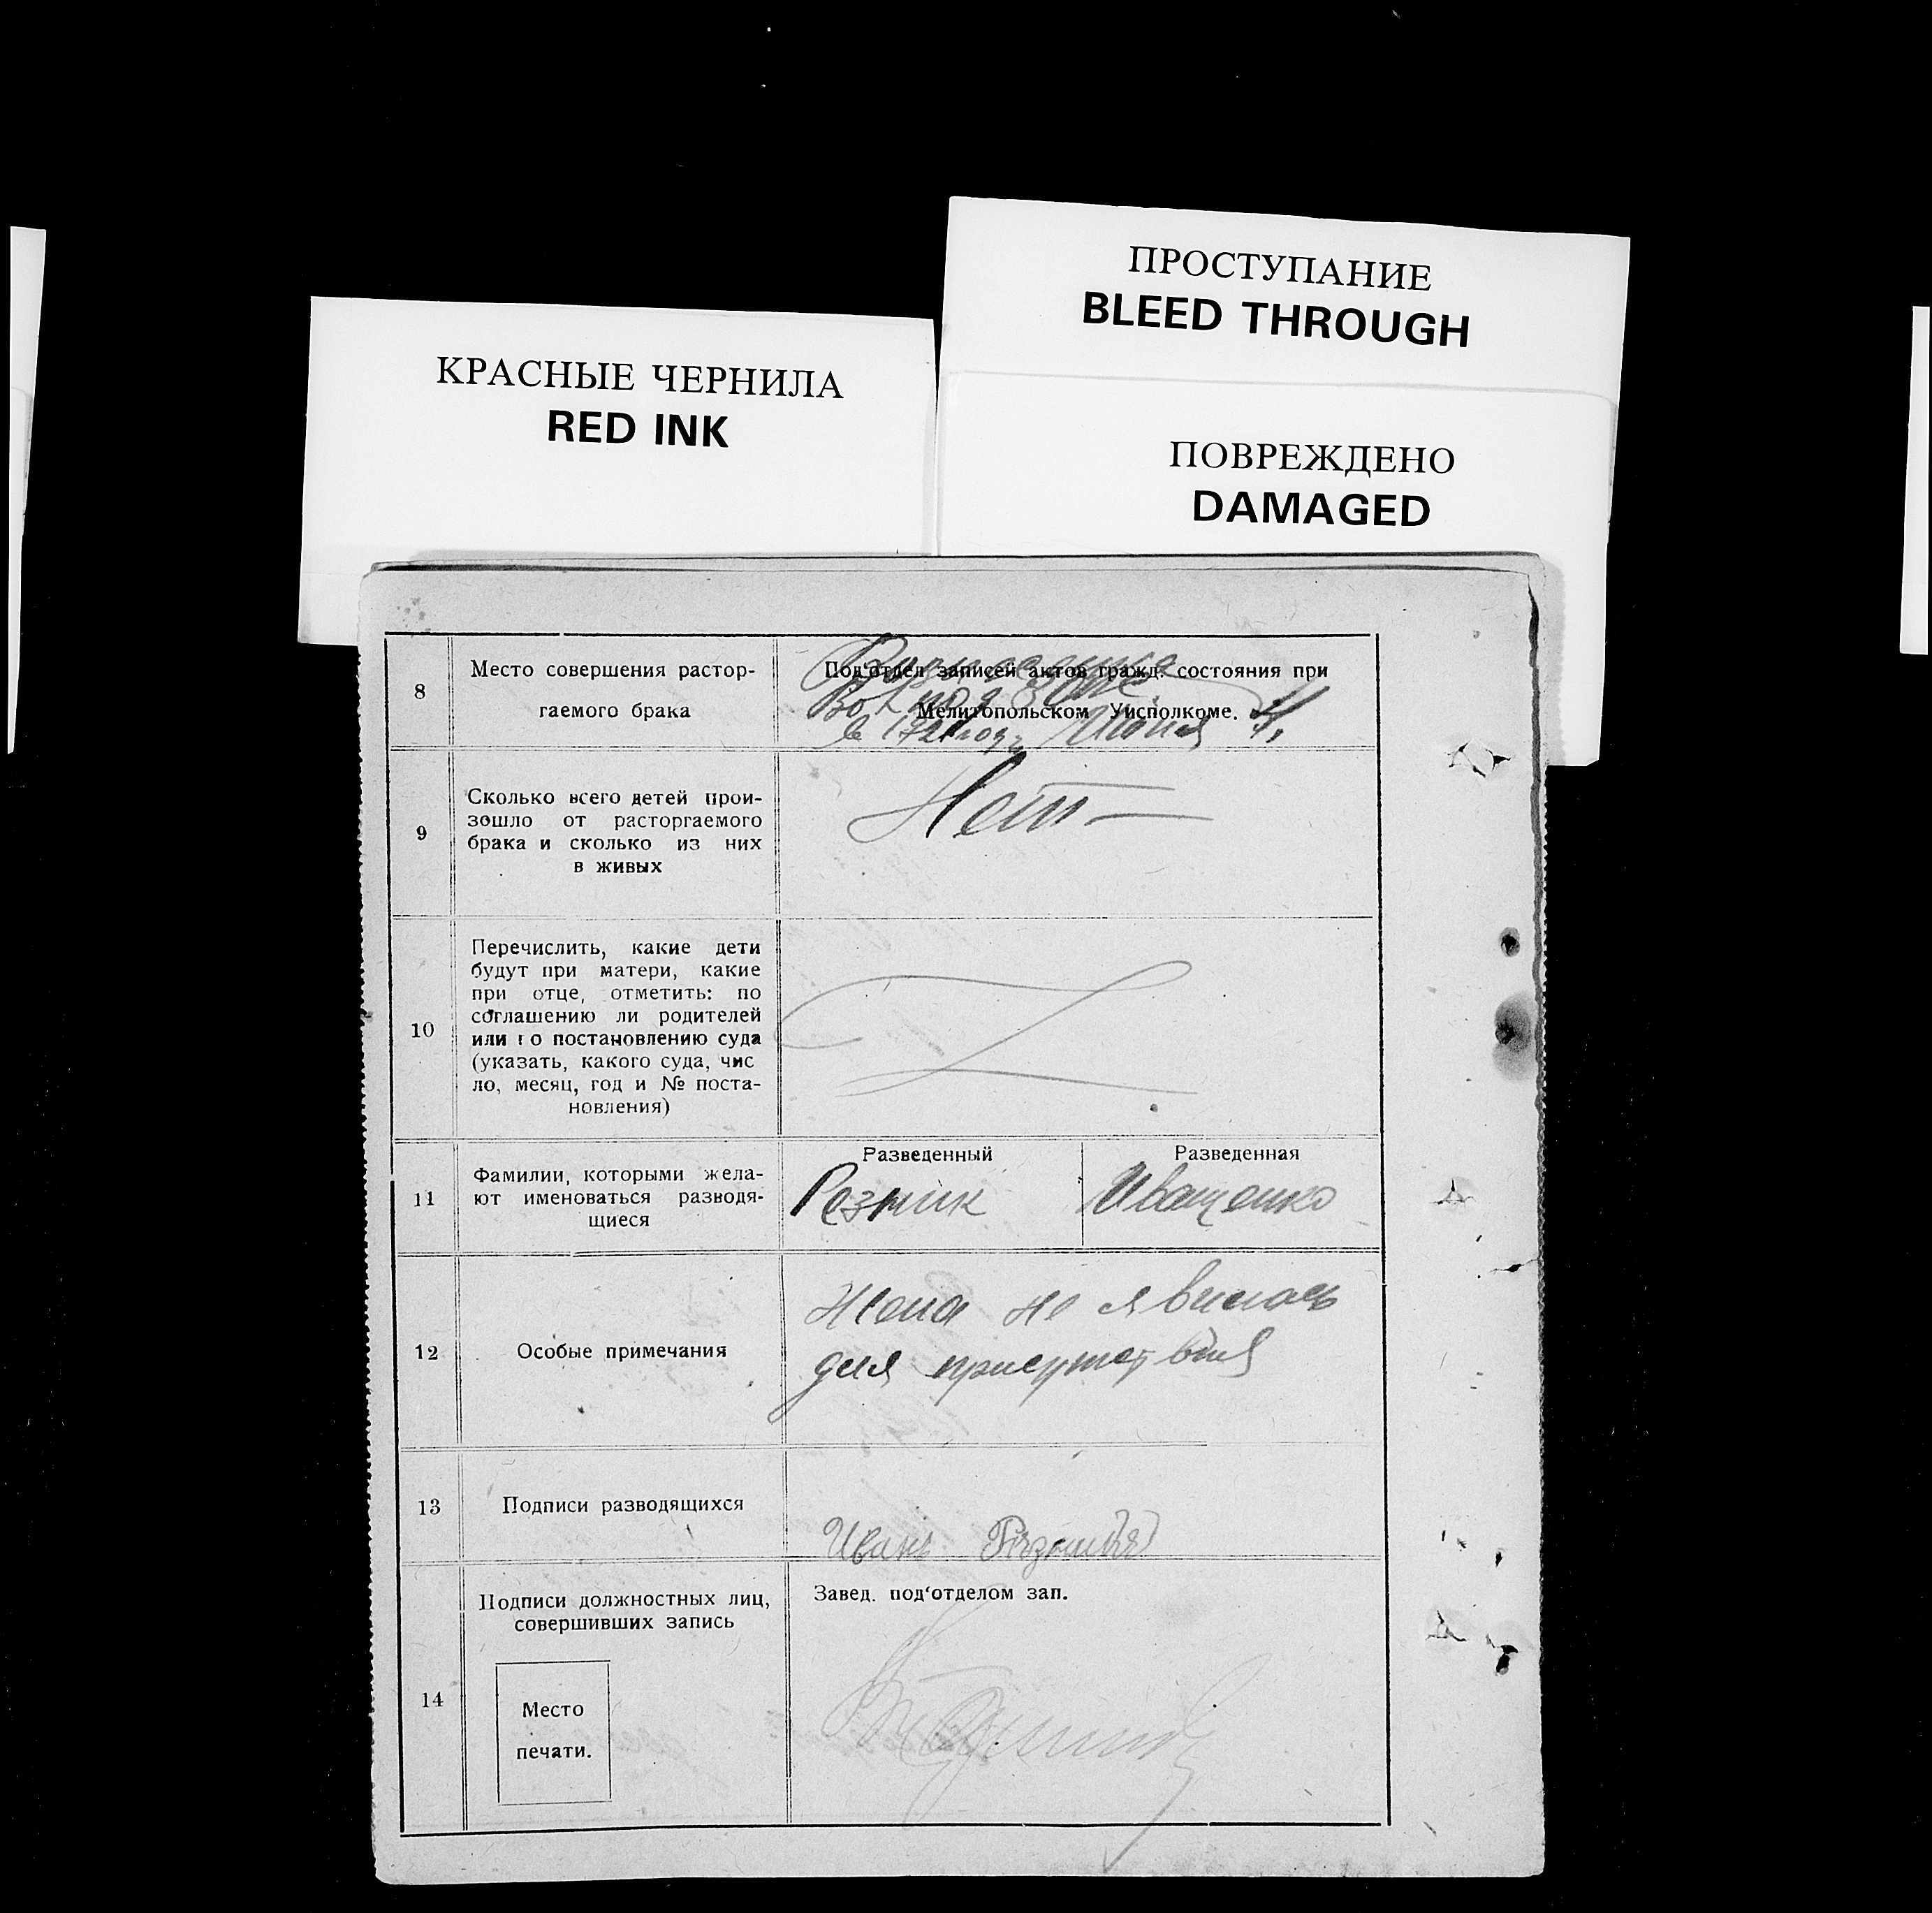 ПРОСТУПАНИЕ
BLEED THROUGH
КРАСНЫЕ ЧЕРНИЛА
RED INK
ПОВРЕЖДЕНО
DAMAGED
8
Место совершения растор-
гаемого брака
Под‘отдел записей актов гражд. состояния при
Мелитопольском Уисполкоме.
в 1921 году Июня 4,
9
Сколько всего детей прои-
зошло от расторгаемого
брака и сколько из них
в живых
Нет
10
Перечислить, какие дети
будут при матери, какие
при отце, отметить: по
соглашению ли родителей
или по постановлению суда
(указать, какого суда, чис
ло, месяц, год и № поста-
новления)
11
Фамилии, которыми жела-
ют именоваться разводя-
щиеся
Разведенный
Резник
Разведенная
Иващенко
12
Особые примечания
Жена не явилась
для присутствия
13
Подписи разводящихся
Иванъ
14
Подписи должностных лиц,
совершивших запись
Место
печати.
Завед. под‘отделом зап.